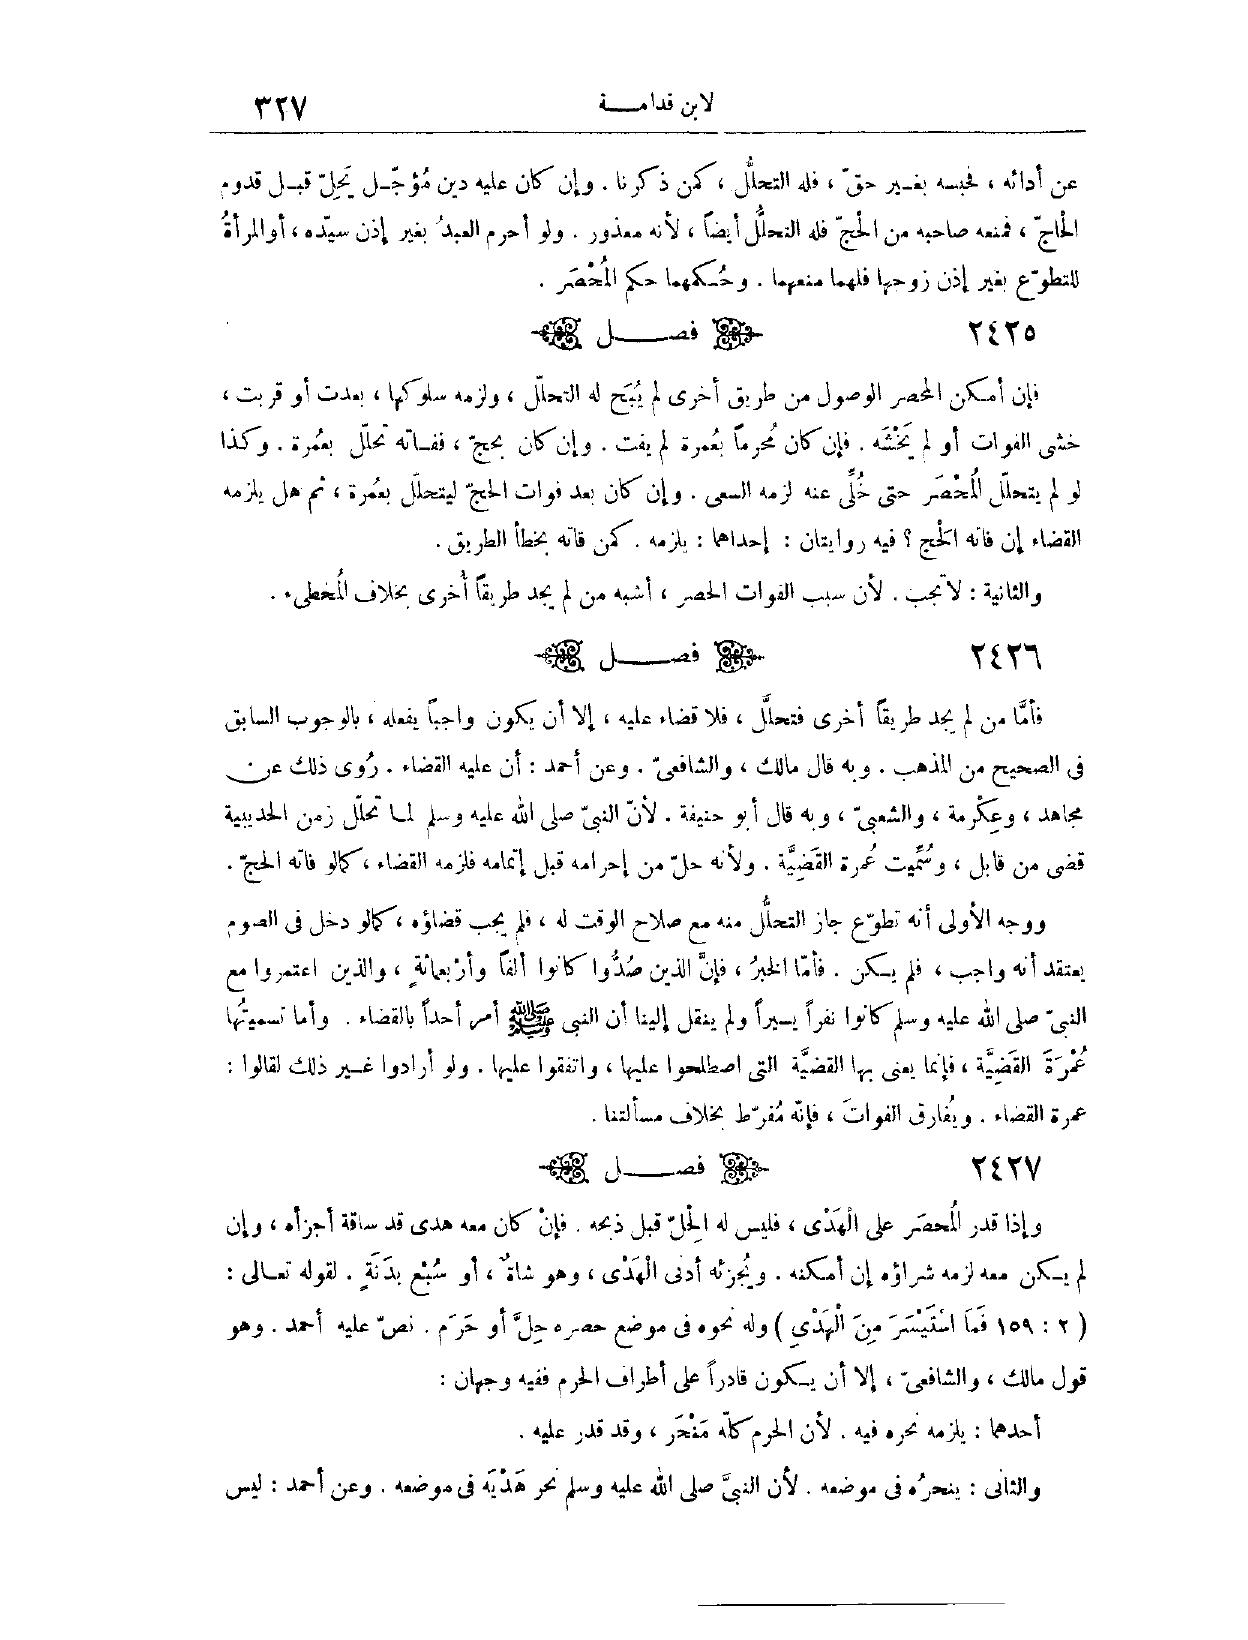 لابن قدامـــة ٣٢٧
عن أدائه ، فحبسه بغـير حقّ ، فله التحلُّل ، كمن ذكرنا . وإن كان عليه دين مُؤجّـل يَحِلّ قبـل قدوم
الحاجّ ، فمنعه صاحبه من الحجّ فله التحلُّل أيضاً ، لأنه معذور . ولو أحرم العبدُ بغير إذن سيّده ، أوالمرأةُ
للتطوّع بغير إذن زوجها فلهما منعهما . وحُـكمهما حكم المُحْصَر .
٢٤٢٥ فصـــل
فإن أمـكن المحصر الوصول من طريق أخرى لم يُبَح له التحلّل ، ولزمه سلوكها ، بعدت أو قربت ،
خشى الفوات أو لم يَخْشَه . فإن كان مُحرماً بعُمرة لم يفت . وإن كان بحجّ ، ففـاته تحلّل بعُمرة . وكذا
لو لم يتحلّل المُحْصَر حتى خُلِّى عنه لزمه السعى . وإن كان بعد فوات الحجّ ليتحلّل بعُمرة ، ثم هل يلزمه
القضاء إن فاته الحْج ؟ فيه روايتان : إحداهما : يلزمه . كمن فاته بخطأ الطريق .
والثانية : لا تجب . لأن سبب الفوات الحصر ، أشبه من لم يجد طريقاً أخرى بخلاف المُخطىء .
٢٤٢٦ فصـــل
فأمَّا من لم يجد طريقاً أخرى فتحلَّل ، فلا قضاء عليه ، إلا أن يكون واجباً يفعله ، بالوجوب السابق
فى الصحيح من المذهب . وبه قال مالك ، والشافعىّ . وعن أحمد : أن عليه القضاء . رُوى ذلك عن
مجاهد ، وعِكْرمة ، والشعبىّ ، وبه قال أبو حنيفة . لأنّ النبىّ صلى الله عليه وسلم لمـا تحلّل زمن الحديبية
قضى من قابل ، وسُمِّيت عُمرة القَضِيَّة . ولأنه حلّ من إحرامه قبل إتمامه فلزمه القضاء ، كمالو فاته الحجّ .
ووجه الأولى أنه تطوّع جاز التحلُّل منه مع صلاح الوقت له ، فلم يجب قضاؤه ، كمالو دخل فى الصوم
يعتقد أنه واجب ، فلم يـكن . فأمّا الخبرُ ، فإنَّ الذين صُدُّوا كانوا ألفاً وأرْبعمائةٍ ، والذين اعتمروا مع
النبىّ صلى الله عليه وسلم كانوا نفراً يسـيراً ولم ينقل إلينا أن النبى ﷺ أمر أحداً بالقضاء . وأما تسميتُها
عُمْرَةَ القَضِيَّة ، فإنما يعنى بها القضيَّة التى اصطلحوا عليها ، واتفقوا عليها . ولو أرادوا غـير ذلك لقالوا :
عمرة القضاء . ويُفارق الفواتَ ، فإنّه مُفرّط بخلاف مسألتنا .
٢٤٢٧ فصـــل
وإذا قدر المُحصَر على الْهَدْى ، فليس له الحِلّ قبل ذبحه . فإنْ كان معه هدى قد ساقة أجزأه ، وإن
لم يـكن معه لزمه شراؤه إن أمـكنه . ويُجزئه أدنى الْهَدْى ، وهو شاةٌ ، أو سُبْع بدَنَةٍ . لقوله تعـالى :
( ٢ : ١٥٩ فَمَا اسْتَيْسَرَ مِنَ الْهَدْيِ ) وله نحوه فى موضع حصره حِلَّ أو حَرَم . نصّ عليه أحمد . وهو
قول مالك ، والشافعىّ ، إلا أن يـكون قادراً على أطراف الحرم ففيه وجهان :
أحدهما : يلزمه نحره فيه . لأن الحرم كلّه مَنْحَر ، وقد قدر عليه .
والثانى : ينحرُه فى موضعه . لأن النبىَّ صلى الله عليه وسلم نحر هَدْيَه فى موضعه . وعن أحمد : ليس